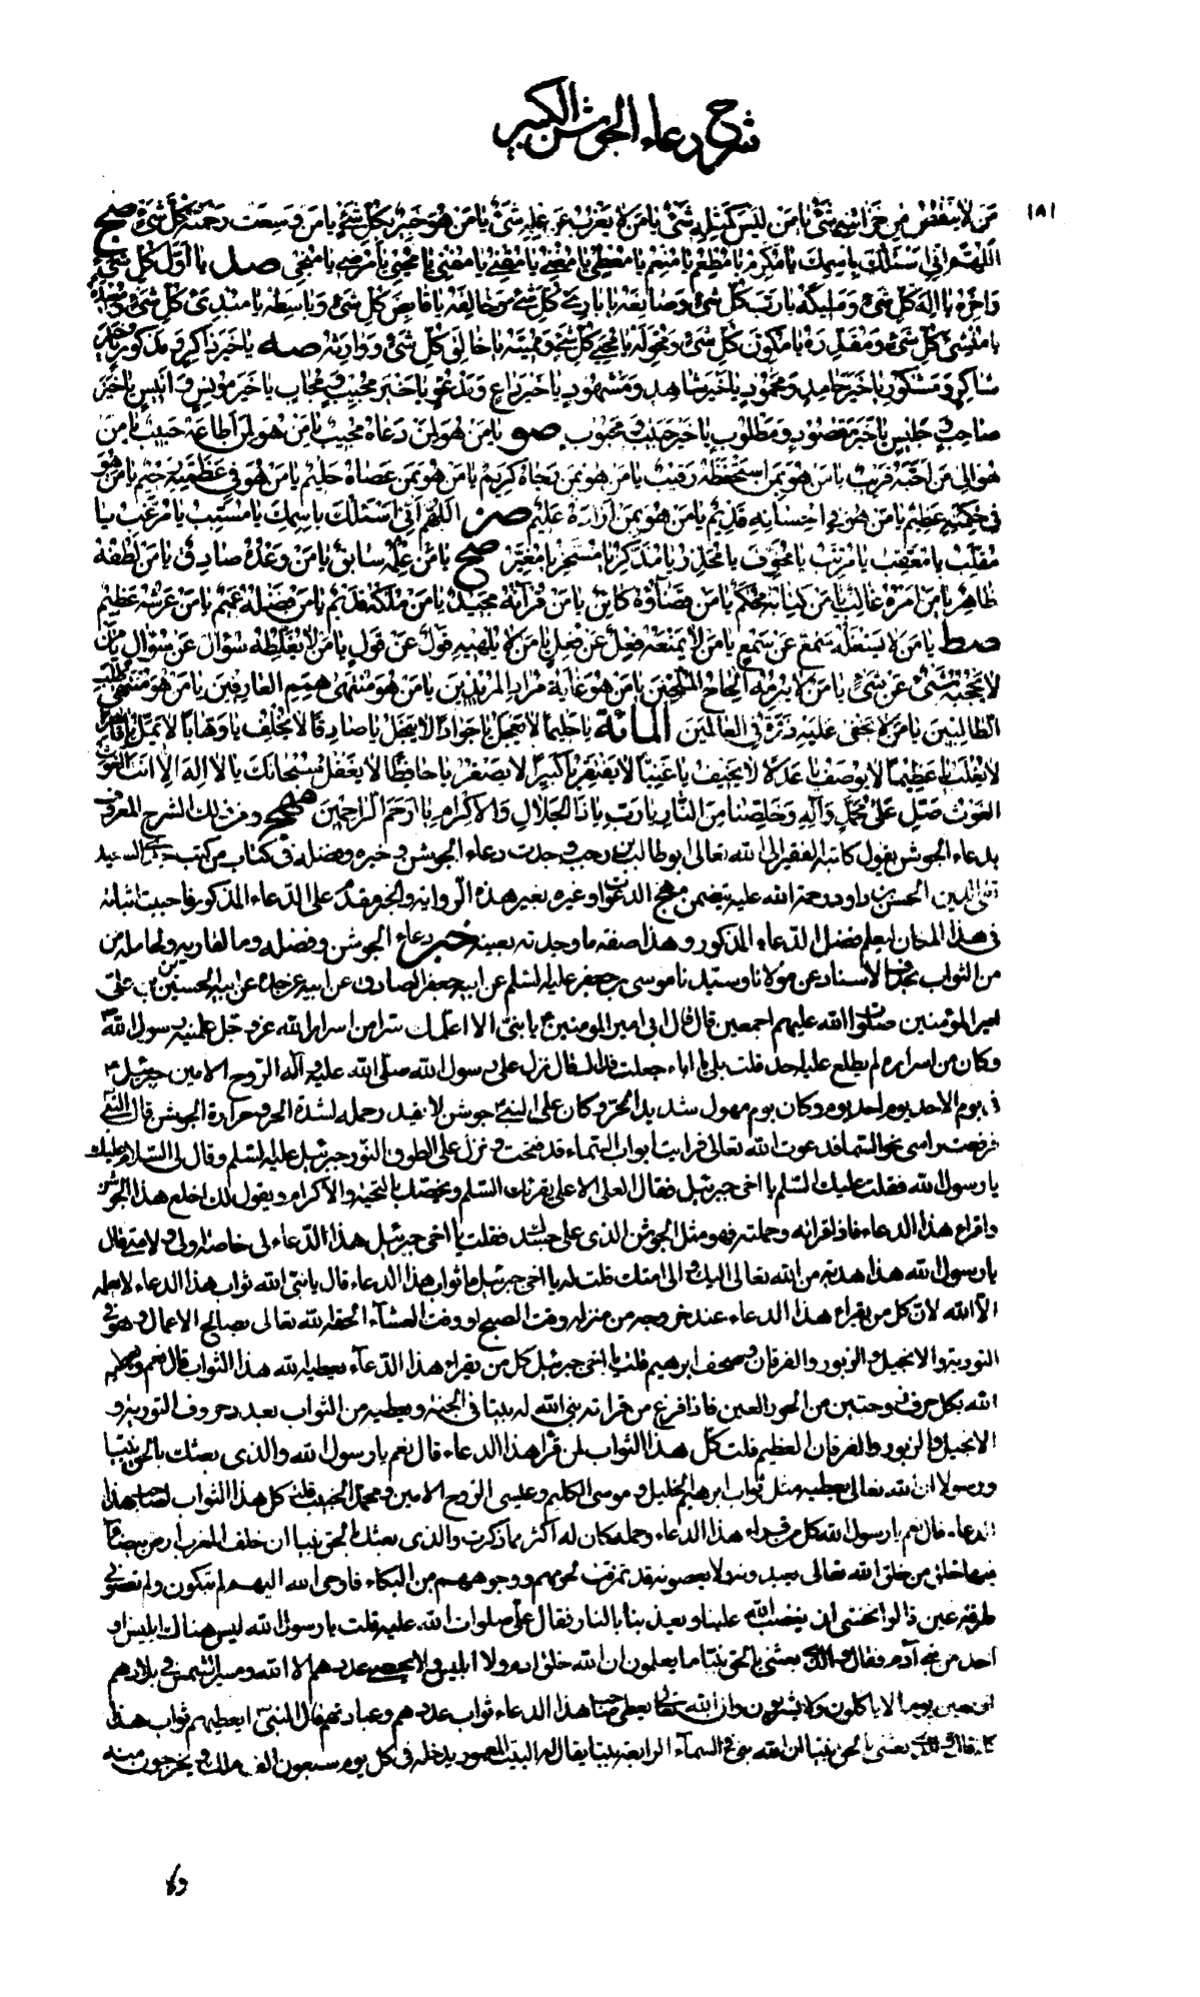 شرح دعاء الجوشن الكبير
١٨١
مَن لا يَنقُصُ مِن خَزائِنِهِ شَيْءٌ يا مَن لَيْسَ كَمِثْلِهِ شَيْءٌ يا مَن لا يَعْزُبُ عَن عِلْمِهِ شَيْءٌ يا مَن هُوَ خَبيرٌ بِكُلِّ شَيْءٍ يا مَن وَسِعَت رَحْمَتُهُ كُلَّ شَيْءٍ
اللّهُمَّ اِنّي اَسْئَلُكَ بِاسْمِكَ يا مُكْرِمُ يا مُطْعِمُ يا مُنْعِمُ يا مُعْطي يا مُغْني يا مُقْني يا مُفْني يا مُحْيي يا مُرْضي يا مُنْجي صد يا اَوَّلَ كُلِّ شَيْءٍ
وَاخِرَهُ يا اِلهَ كُلِّ شَيْءٍ وَمَليكَهُ يا رَبَّ كُلِّ شَيْءٍ وَصانِعَهُ يا بارِئَ كُلِّ شَيْءٍ وَخالِقَهُ يا قابِضَ كُلِّ شَيْءٍ وَباسِطَهُ يا مُبْدِئَ كُلِّ شَيْءٍ وَمُعيدَهُ
يا مُنْشِئَ كُلِّ شَيْءٍ وَمُقَدِّرَهُ يا مُكَوِّنَ كُلِّ شَيْءٍ وَمُحَوِّلَهُ يا مُحْيِيَ كُلِّ شَيْءٍ وَمُميتَهُ يا خالِقَ كُلِّ شَيْءٍ وَوارِثَهُ صه يا خَيْرَ ذاكِرٍ وَمَذْكُورٍ يا خَيْرَ
شاكِرٍ وَمَشْكُورٍ يا خَيْرَ حامِدٍ وَمَحْمُودٍ يا خَيْرَ شاهِدٍ وَمَشْهُودٍ يا خَيْرَ داعٍ وَمَدْعُوٍّ يا خَيْرَ مُجيبٍ وَمُجابٍ يا خَيْرَ مُونِسٍ وَاَنيسٍ يا خَيْرَ
صاحِبٍ وَجَليسٍ يا خَيْرَ مَقْصُودٍ وَمَطْلُوبٍ يا خَيْرَ حَبيبٍ وَمَحْبُوبٍ صو يا مَن هُوَ لِمَن دَعاهُ مُجيبٌ يا مَن هُوَ لِمَن اَطاعَهُ حَبيبٌ يا مَن
هُوَ اِلى مَن اَحَبَّهُ قَريبٌ يا مَن هُوَ بِمَنِ اسْتَحْفَظَهُ رَقيبٌ يا مَن هُوَ بِمَن رَجاهُ كَريمٌ يا مَن هُوَ بِمَن عَصاهُ حَليمٌ يا مَن هُوَ في عَظَمَتِهِ رَحيمٌ يا مَن هُوَ
في حِكْمَتِهِ عَظيمٌ يا مَن هُوَ في اِحْسانِهِ قَديمٌ يا مَن هُوَ بِمَن اَرادَهُ عَليمٌ صز اللّهُمَّ اِنّي اَسْئَلُكَ بِاسْمِكَ يا مُسَبِّبُ يا مُرَغِّبُ يا
مُقَلِّبُ يا مُعَقِّبُ يا مُرَتِّبُ يا مُخَوِّفُ يا مُحَذِّرُ يا مُذَكِّرُ يا مُسَخِّرُ يا مُغَيِّرُ صح يا مَن عِلْمُهُ سابِقٌ يا مَن وَعْدُهُ صادِقٌ يا مَن لُطْفُهُ
ظاهِرٌ يا مَن اَمْرُهُ غالِبٌ يا مَن كِتابُهُ مُحْكَمٌ يا مَن قَضاؤُهُ كائِنٌ يا مَن قُرْآنُهُ مَجيدٌ يا مَن مُلْكُهُ قَديمٌ يا مَن فَضْلُهُ عَميمٌ يا مَن عَرْشُهُ عَظيمٌ
صط يا مَن لا يَشْغَلُهُ سَمْعٌ عَن سَمْعٍ يا مَن لا يَمْنَعُهُ فِعْلٌ عَن فِعْلٍ يا مَن لا يُلْهيهِ قَوْلٌ عَن قَوْلٍ يا مَن لا يُغَلِّطُهُ سُؤالٌ عَن سُؤالٍ يا مَن
لا يَحْجُبُهُ شَيْءٌ عَن شَيْءٍ يا مَن لا يُبْرِمُهُ اِلْحاحُ الْمُلِحّينَ يا مَن هُوَ غايَةُ مُرادِ الْمُريدينَ يا مَن هُوَ مُنْتَهى هِمَمِ الْعارِفينَ يا مَن هُوَ مُنْتَهى طَلَبِ
الطّالِبينَ يا مَن لا يَخْفى عَلَيْهِ ذَرَّةٌ فِي الْعالَمينَ المائة يا حَليماً لا يَعْجَلُ يا جَواداً لا يَبْخَلُ يا صادِقاً لا يُخْلِفُ يا وَهّاباً لا يَمَلُّ يا قاهِراً
لا يُغْلَبُ يا عَظيماً لا يُوصَفُ يا عَدْلاً لا يَحيفُ يا غَنِيّاً لا يَفْتَقِرُ يا كَبيراً لا يَصْغُرُ يا حافِظاً لا يَغْفُلُ سُبْحانَكَ يا لا اِلهَ اِلاّ اَنْتَ الْغَوْثَ
الْغَوْثَ صَلِّ عَلى مُحَمَّدٍ وَآلِهِ وَخَلِّصْنا مِنَ النّارِ يا رَبِّ يا ذَا الْجَلالِ وَالْاِكْرامِ يا اَرْحَمَ الرّاحِمينَ ومن ذلك الشرح المعروف
بدعاء الجوشن يقول كاتبه الفقير الى الله تعالى ابو طالب بن رجب وجدت دعاء الجوشن وخبره وفضله في كتاب من كتب جدي السعيد
تقي الدين الحسن بن داود رحمة الله عليه يتضمن مهج الدعوات وغيره بغير هذه الرواية والخبر مقدم على الدعاء المذكور فاحببت اثباته
في هذا المكان ليعلم فضل الدعاء المذكور وهذا صفة ما وجدته بعينه خبر دعاء الجوشن وفضله وما لقاريه ولحامله من
من الثواب بحذف الاسناد عن مولانا وسيدنا موسى بن جعفر عليه السلم عن ابيه جعفر الصادق عن ابيه عن جده عن ابيه الحسين بن علي
امير المؤمنين صلوات الله عليهم اجمعين قال قال ابي امير المؤمنين يا بني الا اعلمك سرا من اسرار الله عز وجل علمنيه رسول الله
وكان من اسراره لم يطلع عليه احد قلت بلى يا اباه جعلت فداك قال نزل على رسول الله صلى الله عليه وآله الروح الامين جبرئيل
في يوم الاحد يوم احد وكان يوم مهول شديد الحر وكان على النبي جوشن لا يقدر حمله لشدة الحر وحرارة الجوشن قال النبي
فرفعت راسي نحو السماء فدعوت الله تعالى فرايت ابواب السماء قد فتحت ونزل علي الطوق النور جبرئيل عليه السلم وقال لي السلام عليك
يا رسول الله فقلت عليك السلم يا اخي جبرئيل فقال العلي الاعلى يقرئك السلم ويخصك بالتحية والاكرام ويقول لك اخلع هذا الجوشن
واقراء هذا الدعاء فاذا قراته وحملته فهو مثل الجوشن الذي على جسدك فقلت يا اخي جبرئيل هذا الدعاء لي خاصة او لي ولامتي قال
يا رسول الله هذا هدية من الله تعالى اليك والى امتك قلت له يا اخي جبرئيل ما ثواب هذا الدعاء قال يا نبي الله ثواب هذا الدعاء لا يعلمه
الا الله لان كل من يقراء هذا الدعاء عند خروجه من منزله وقت الصبح او وقت العشاء الحقه الله تعالى بصالح الاعمال وهو في
التورية والانجيل والزبور والفرقان وصحف ابرهيم قلت يا اخي جبرئيل كل من يقراء هذا الدعاء يعطيه الله هذا الثواب قال نعم ويعطيه
الله بكل حرف زوجتين من الحور العين فاذا فرغ من قراءته بنى الله له بيتا في الجنة ويعطيه من الثواب بعدد حروف التورية و
الانجيل والزبور والفرقان العظيم قلت كل هذا الثواب لمن قرأ هذا الدعاء قال نعم يا رسول الله والذي بعثك بالحق نبيا
ورسولا ان الله تعالى يعطيه مثل ثواب ابرهيم الخليل وموسى الكليم وعيسى الروح الامين ومحمد الحبيب قلت كل هذا الثواب لصاحب هذا
الدعاء قال نعم يا رسول الله كل من قراء هذا الدعاء وحمله كان له اكثر مما ذكرت والذي بعثك بالحق نبيا ان خلف المغرب ارض بيضآ
فيها خلق من خلق الله تعالى يعبدونه ولا يعصونه قد تمزقت لحومهم ووجوههم من البكاء فاوحى الله اليهم لم تبكون ولم تعصوني
طرفة عين قالوا نخشى ان يغضب الله علينا ويعذبنا بالنار فقال علي صلوات الله عليه قلت يا رسول الله ليس هناك ابليس او
احد من بني آدم فقال والذي بعثني بالحق نبيا ما يعلمون ان الله خلق ادم ولا ابليس ولا يحصي عددهم الا الله ومسير الشمس في بلادهم
اربعين يوما لا ياكلون ولا يشربون وان الله تعالى يعطي صاحب هذا الدعاء ثواب عددهم وعبادتهم قال النبي ايعطيهم ثواب هذا
بعثني بالحق نبيا ان الله بنى في السمآء الرابعة بيتا يقال له البيت المعمور يدخله في كل يوم سبعون الف ملك ويخرجون منه
ولا